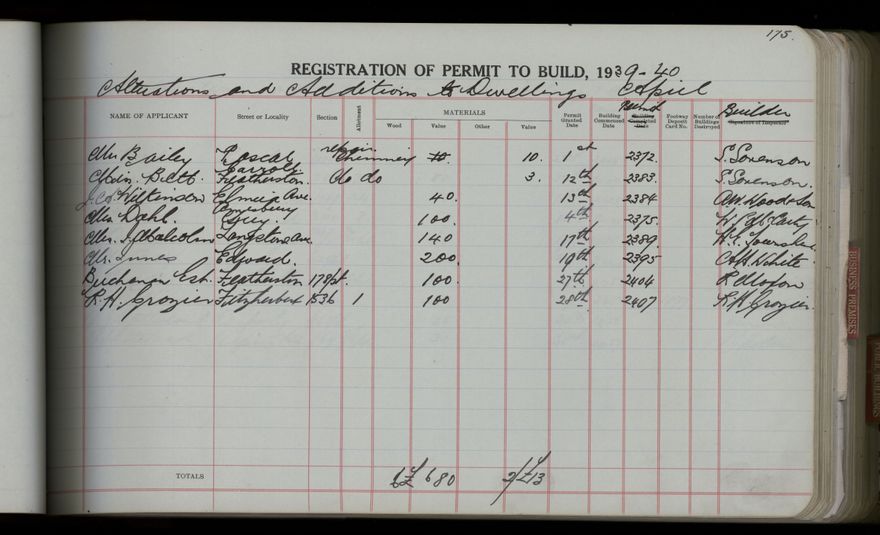 175.
REGISTRATION OF PERMIT TO BUILD, 1939-40
Alterations and Additions to Dwellings April
NAME OF APPLICANT Street or Locality Section Allotment MATERIALS Permit Granted Date Building Commenced Date Permit Building Completed Date Footway Deposit Card No. Number of Buildings Destroyed Builder Signature of Inspector
Wood Value Other Value
Mr Bailey repair Chimney 10. 1st 2372. S. Sorenson
Featherston. do do 3. 12th 2383. S. Sorenson.
J. Wilkinson Ave. 40. 13th 2384
Mr Dahl. 100. 4th 2375
Mr. J. Malcolm Ave. 140 17th 2389.
Mr. Innes Edward. 200. 19th 2395 White
Buchanan Est. Featherston 178/pt. 100. 27th 2404 Moxon
R. H. Grozier Fitzherbert 1536 1 100 28th 2407 R. H. Grozier.
TOTALS 6/£ 680 2/£13
BUSINESS PREMISES